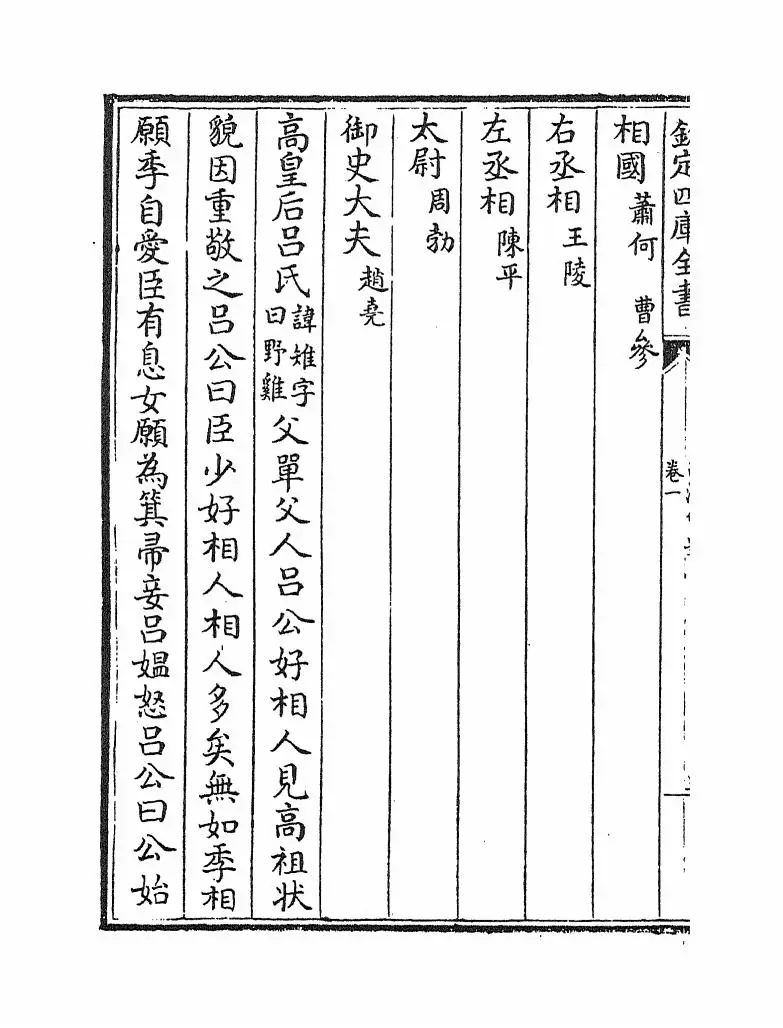 欽定四庫全書
卷一
相國 蕭何 曹參
右丞相 王陵
左丞相 陳平
太尉 周勃
御史大夫 趙堯
高皇后呂氏 諱雉字曰野雞 父單父人呂公好相人見高祖狀
貌因重敬之呂公曰臣少好相人相人多矣無如季相
願季自愛臣有息女願為箕帚妾呂媼怒呂公曰公始